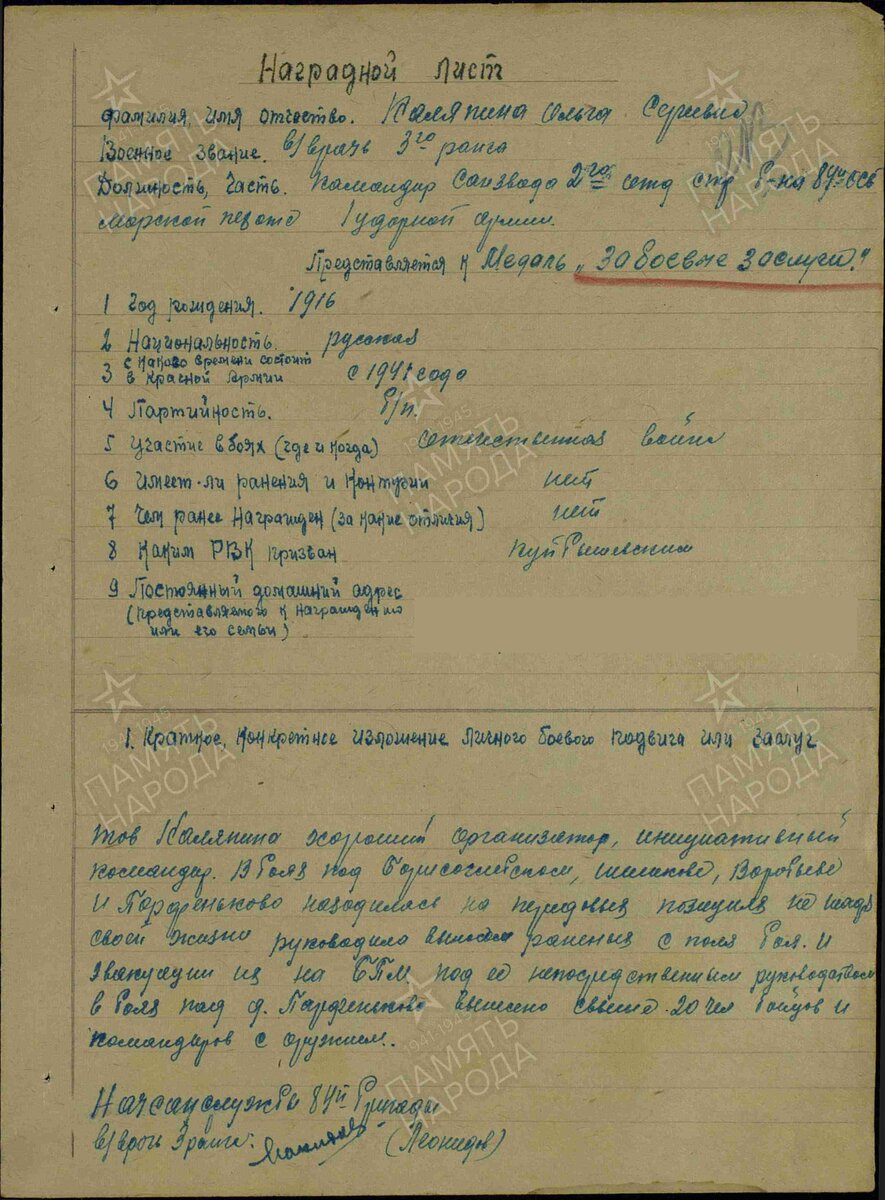 Наградной лист
фамилия, имя отчество. Каляпина Ольга Сергеевна
Военное звание. в/врачь 3го ранга
Должность, часть. Командир санзвода 2го отд стр б-на 84й осб
морской пехоте 1 ударной армии.
Представляется к Медаль "За боевые заслуги."
1 Год рождения. 1916
2 Национальность. русская
3 с какого времени состоит
в Красной Армии с 1941 года
4 Партийность. б/п.
5 Участие в боях (где и когда) отечественная война
6 Имеет-ли ранения и контузии нет
7 Чем ранее награжден (за какие отличия) нет
8 Каким РВК призван Куйбышевским
9 Постоянный домашний адрес
(представляемого к награждению
или его семьи)
1. Краткое, конкретное изложение личного боевого подвига или заслуг
тов Каляпина хороший организатор, инициативный
командир. В боях под Борисоглебском, Шишково, Воробьево
и Парфеньково находилась на передовых позициях не щадя
своей жизни руководила выносом раненых с поля боя. и
эвакуации их на БПМ под ее непосредственным руководством
в боях под д. Парфеньково вынесено свыше 20 чел бойцов и
командиров с оружием.
Начсанслужбы 84й бригады
в/врач 3 ранга: (Леонидов)
ПАМЯТЬ НАРОДА
1941-1945